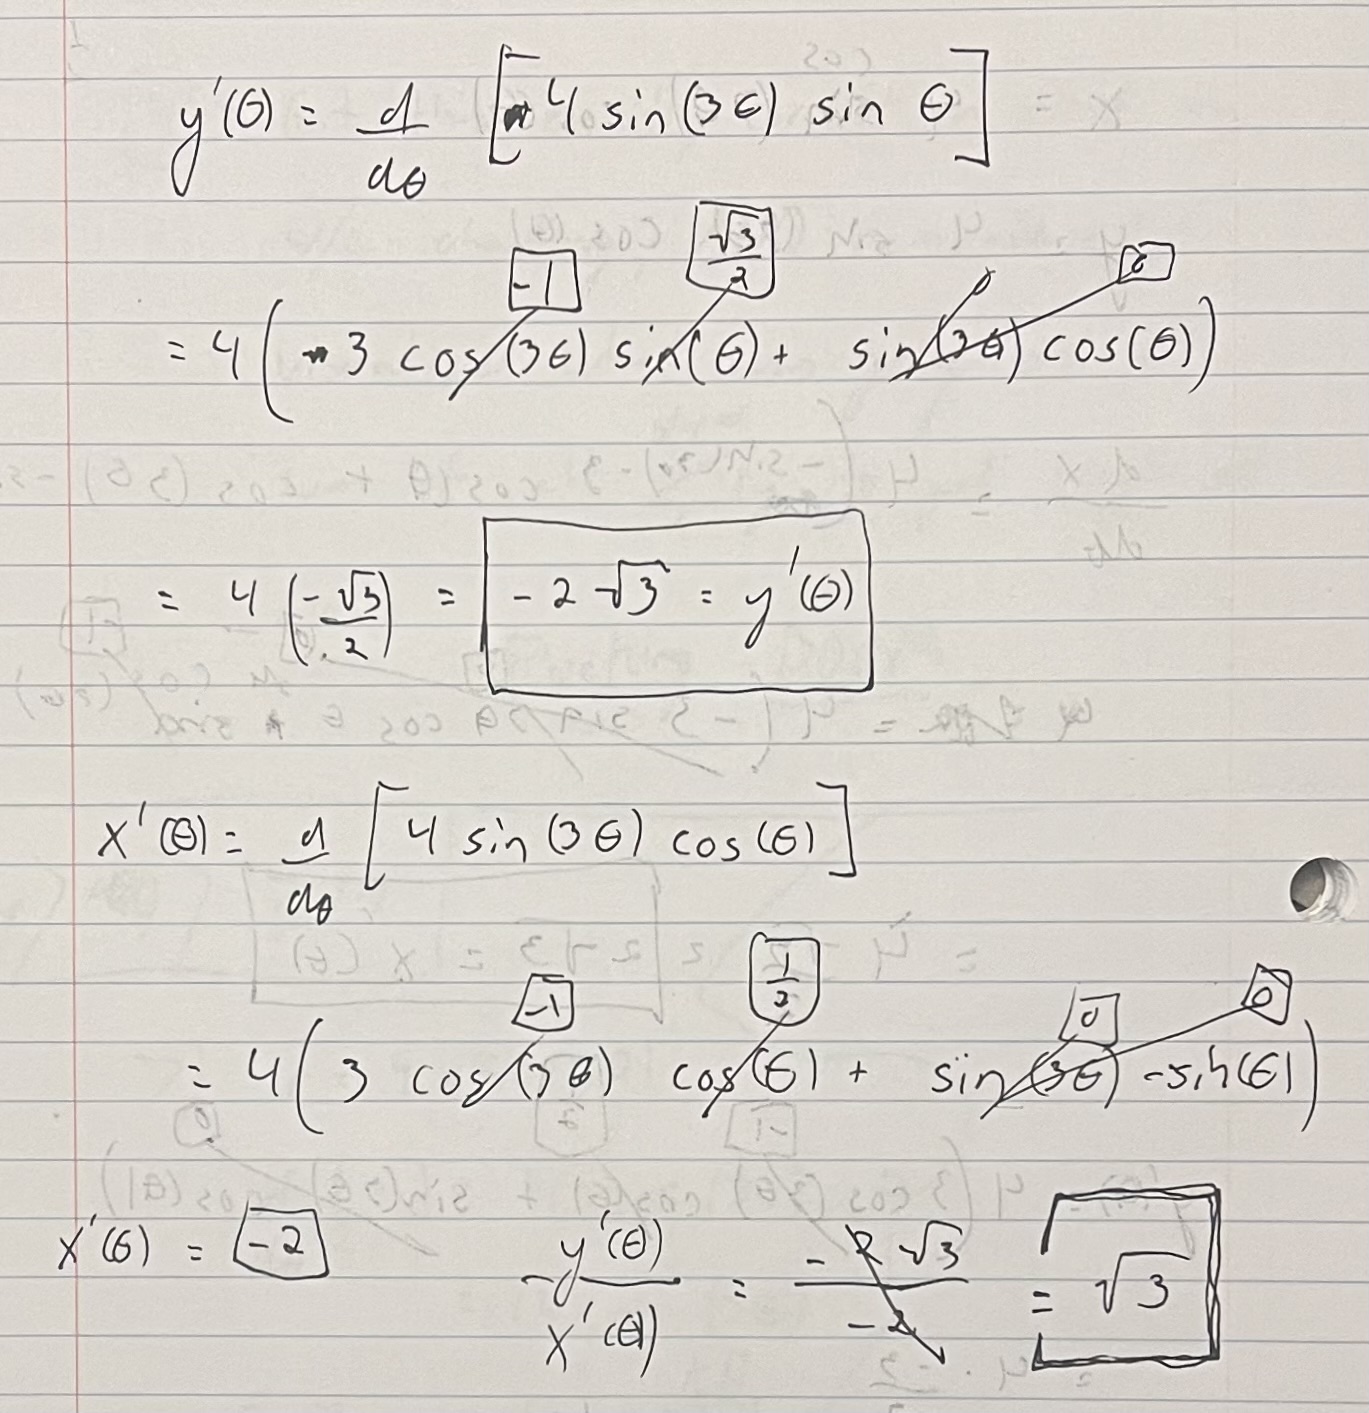 y'(θ) = d/dθ [4 sin(3θ) sin θ]
-1 √3/2 0 0
= 4 ( 3 cos(3θ) sin(θ) + sin(3θ) cos(θ) )
= 4 (-√3/2) = -2√3 = y'(θ)
x'(θ) = d/dθ [4 sin(3θ) cos(θ)]
-1 1/2 0 0
= 4 ( 3 cos(3θ) cos(θ) + sin(3θ) -sin(θ) )
x'(θ) = -2 y'(θ)/x'(θ) = -2√3/-2 = √3